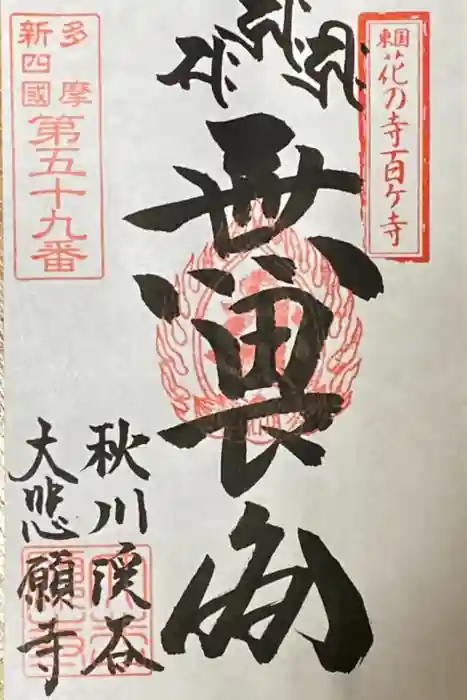 東国
花の寺百ヶ寺
無畏閣
多摩
新四國
第五十九番
秋川渓谷
大悲願寺